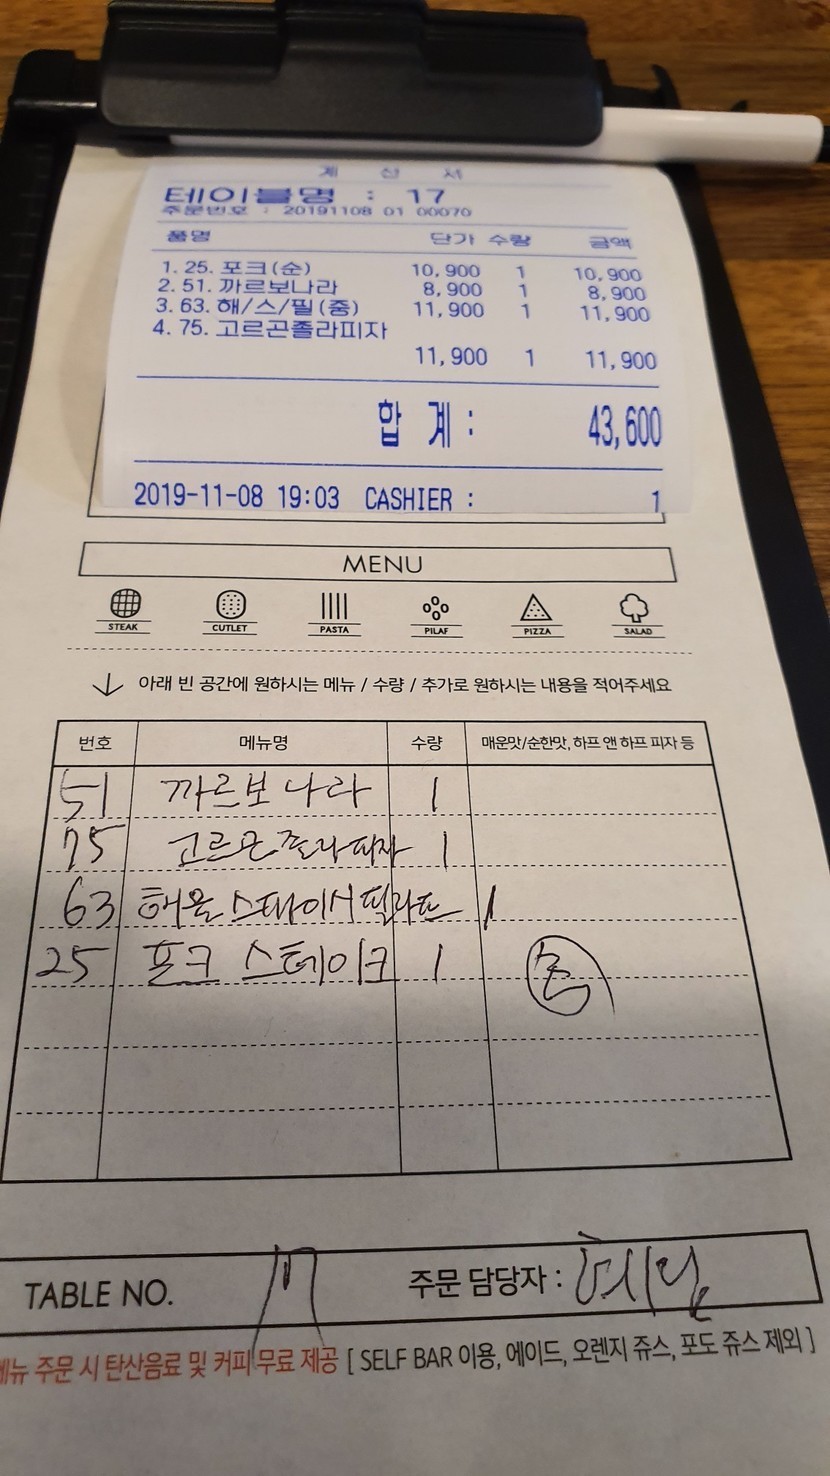 계 산 서
테이블명 : 17
주문번호 : 20191108 01 00070
품명 단가 수량 금액
1. 25. 포크(순) 10,900 1 10,900
2. 51. 까르보나라 8,900 1 8,900
3. 63. 해/스/필(중) 11,900 1 11,900
4. 75. 고르곤졸라피자
11,900 1 11,900
합 계 : 43,600
2019-11-08 19:03 CASHIER : 1
MENU
STEAK CUTLET PASTA PILAF PIZZA SALAD
아래 빈 공간에 원하시는 메뉴 / 수량 / 추가로 원하시는 내용을 적어주세요
번호 메뉴명 수량 매운맛/순한맛, 하프 앤 하프 피자 등
51 까르보나라 1
75 고르곤졸라피자 1
63 해물스테이크필라프 1
25 포크 스테이크 1 순
TABLE NO. 17 주문 담당자 :
메뉴 주문 시 탄산음료 및 커피 무료 제공 [ SELF BAR 이용, 에이드, 오렌지 쥬스, 포도 쥬스 제외 ]